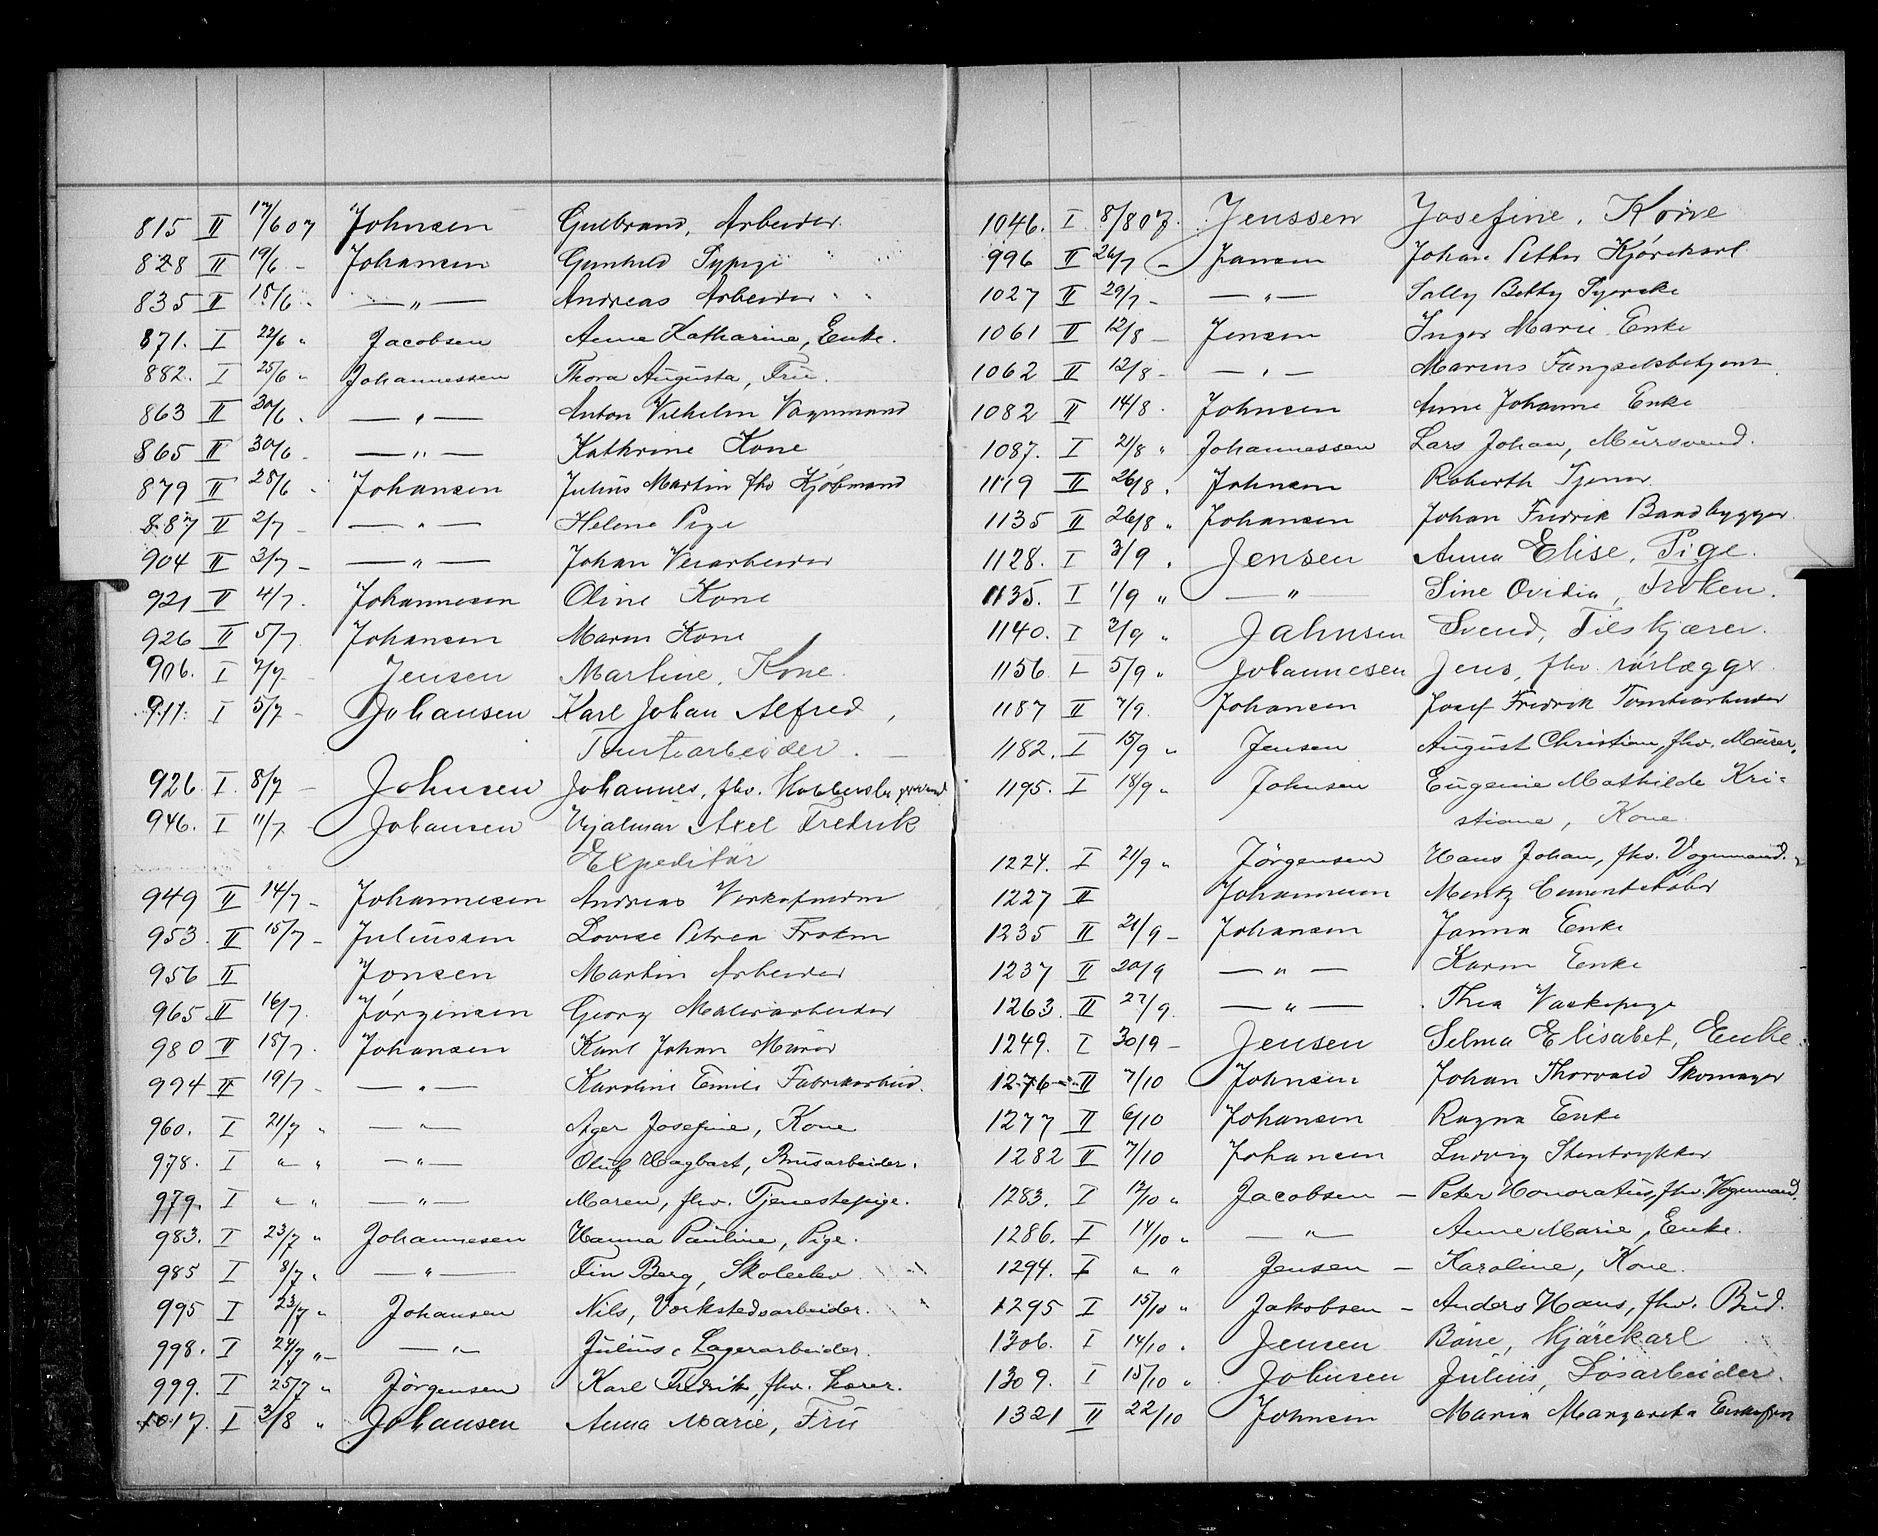 815 II 17/6 07 Johnsen Gulbrand, Arbeider.
828 II 19/6 - Johansen Gunhild Sypige
835 II 18/6 - —„— Andreas Arbeider
871. I 22/6 „ Jacobsen Anna Katharina, Enke.
882. I 25/6 „ Johannessen Thora Augusta, Fru.
863 II 30/6 . —„— Anton Vilhelm Vognmand
865 II 30/6 —„— Kathrine Kone
879 II 28/6 . Johansen Julius Martin fhv Kjøbmand
887 II 2/7 - —„— Helene Pige
904 II 3/7 - —„— Johan Veiarbeider
921 II 4/7. Johannesen Oline Kone
926 II 5/7. Johansen Maren Kone
906. I 7/7 - Jensen Martine, Kone.
911. I 5/7 - Johansen Karl Johan Alfred,
Tomtearbeider. —
926. I. 8/7 - Johnsen Johannes, fhv.
946. I 11/7 - Johansen Hjalmar Axel Fredrik
Expeditør
949 II 14/7 - Johannesen Andreas
953. II 15/7 - Juliussen Lovise Petrea Frøken
956 II Jonsen Martin Arbeider
965 II 16/7. Jørgensen Georg Malerarbeider
980 II 15/7. Johansen Karl Johan Murer
994 II 19/7 - —„— Karoline Emilie Fabrikarbeid.
960. I 21/7 „ —„— Ager Josefine, Kone
978. I „ „ —„— Oluf Hagbart, Brusarbeider.
979. I „ „ —„— Maren, fhv. Tjenestepige.
983. I 23/7 „ Johannesen Hanna Pauline, Pige.
985 I 8/7 „ —„— Fin Berg, Skoleelev
995 I 23/7 „ Johansen Nils, Verkstedsarbeider.
998. I 24/7 „ —„— Julius, Lagerarbeider.
999. I 25/7 „ Jörgensen Karl Fredrik, fhv. Lærer.
1017. I 3/8 „ Johansen Anna Marie, Fru
1046. I 8/8 07. Jenssen Josefine, Kone
996 II 26/7 - Jansen Johan Petter Kjørekarl.
1027 II 29/7 - —„— Sally Betty Syerske
1061 II 12/8 - Jensen Inger Marie Enke
1062 II 12/8 - —„— Marius Fængselsbetjent
1082 II 14/8. Johnsen Anne Johanne Enke
1087. I 21/8 „ Johannessen Lars Johan, Mursvend.
1119 II 26/8 . Johnsen Roberth Tjener.
1135 II 26/8 „ Johansen Johan Fredrik Baadbygger.
1128. I 3/9 . Jensen Anna Elise, Pige.
1135. I 1/9 „ —„— Sine Ovidia, Frøken.
1140. I 3/9 „ Jahnsen Svend, Filskjærer.
1156 I 5/9 „ Johannesen Jens, fhv. rörlægger.
1187 II 7/9. Johansen Josef Fredrik Tomtearbeider
1182. I 15/9 „ Jensen August Christian, fhv. Murer.
1195. I 18/9 „ Johnsen Eugenie Mathilde Kri-
stiane, Kone.
1224. I 21/9 „ Jörgensen Hans Johan, fhv. Vognmand.
1227 II Johannesen Mentz Cementstøber
1235 II 21/9 - Johansen Janna Enke
1237 II 20/9 —„— Karen Enke
1263. II 27/9. —„— Thea Vaskepige
1249. I 30/9 - Jensen Selma Elisabet, Enke.
1276 II 7/10 Johnsen Johan Thorvald Skomager
1277 II 6/10 Johansen Ragna Enke
1282 II 7/10 Johansen Ludvig Stentrykker
1283. I 12/10 „ Jacobsen — Peter Honoratus, fhv. Vognmand.
1286. I 14/10 „ —„— Anne Marie, Enke.
1294. I „ „ Jensen — Karoline, Kone.
1295 I 15/10 „ Jakobsen — Anders Hans, fhv. Bud.
1306. I 14/10 . Jensen Böne, Kjörekarl
1309. I 15/10 „ Johnsen Julius, Løsarbeider.
1321 II 22/10 Johnsen Maria Margareta